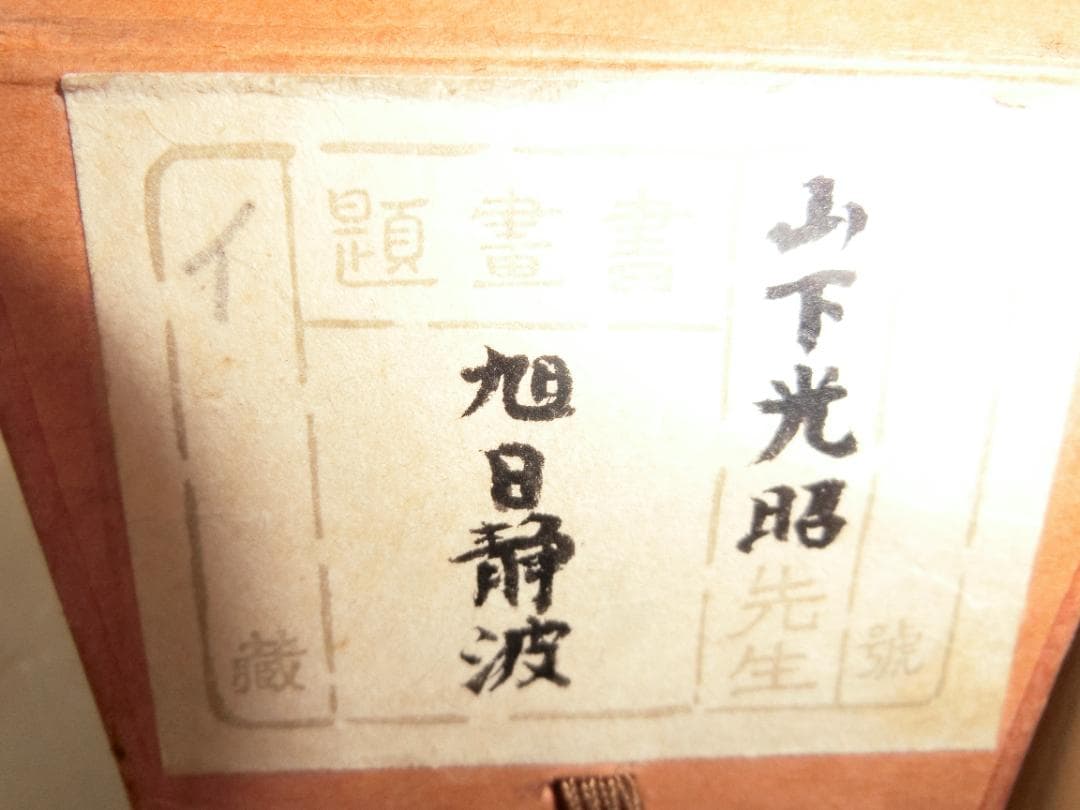 號
山下光昭先生
書畫題
旭日静波
イ
藏